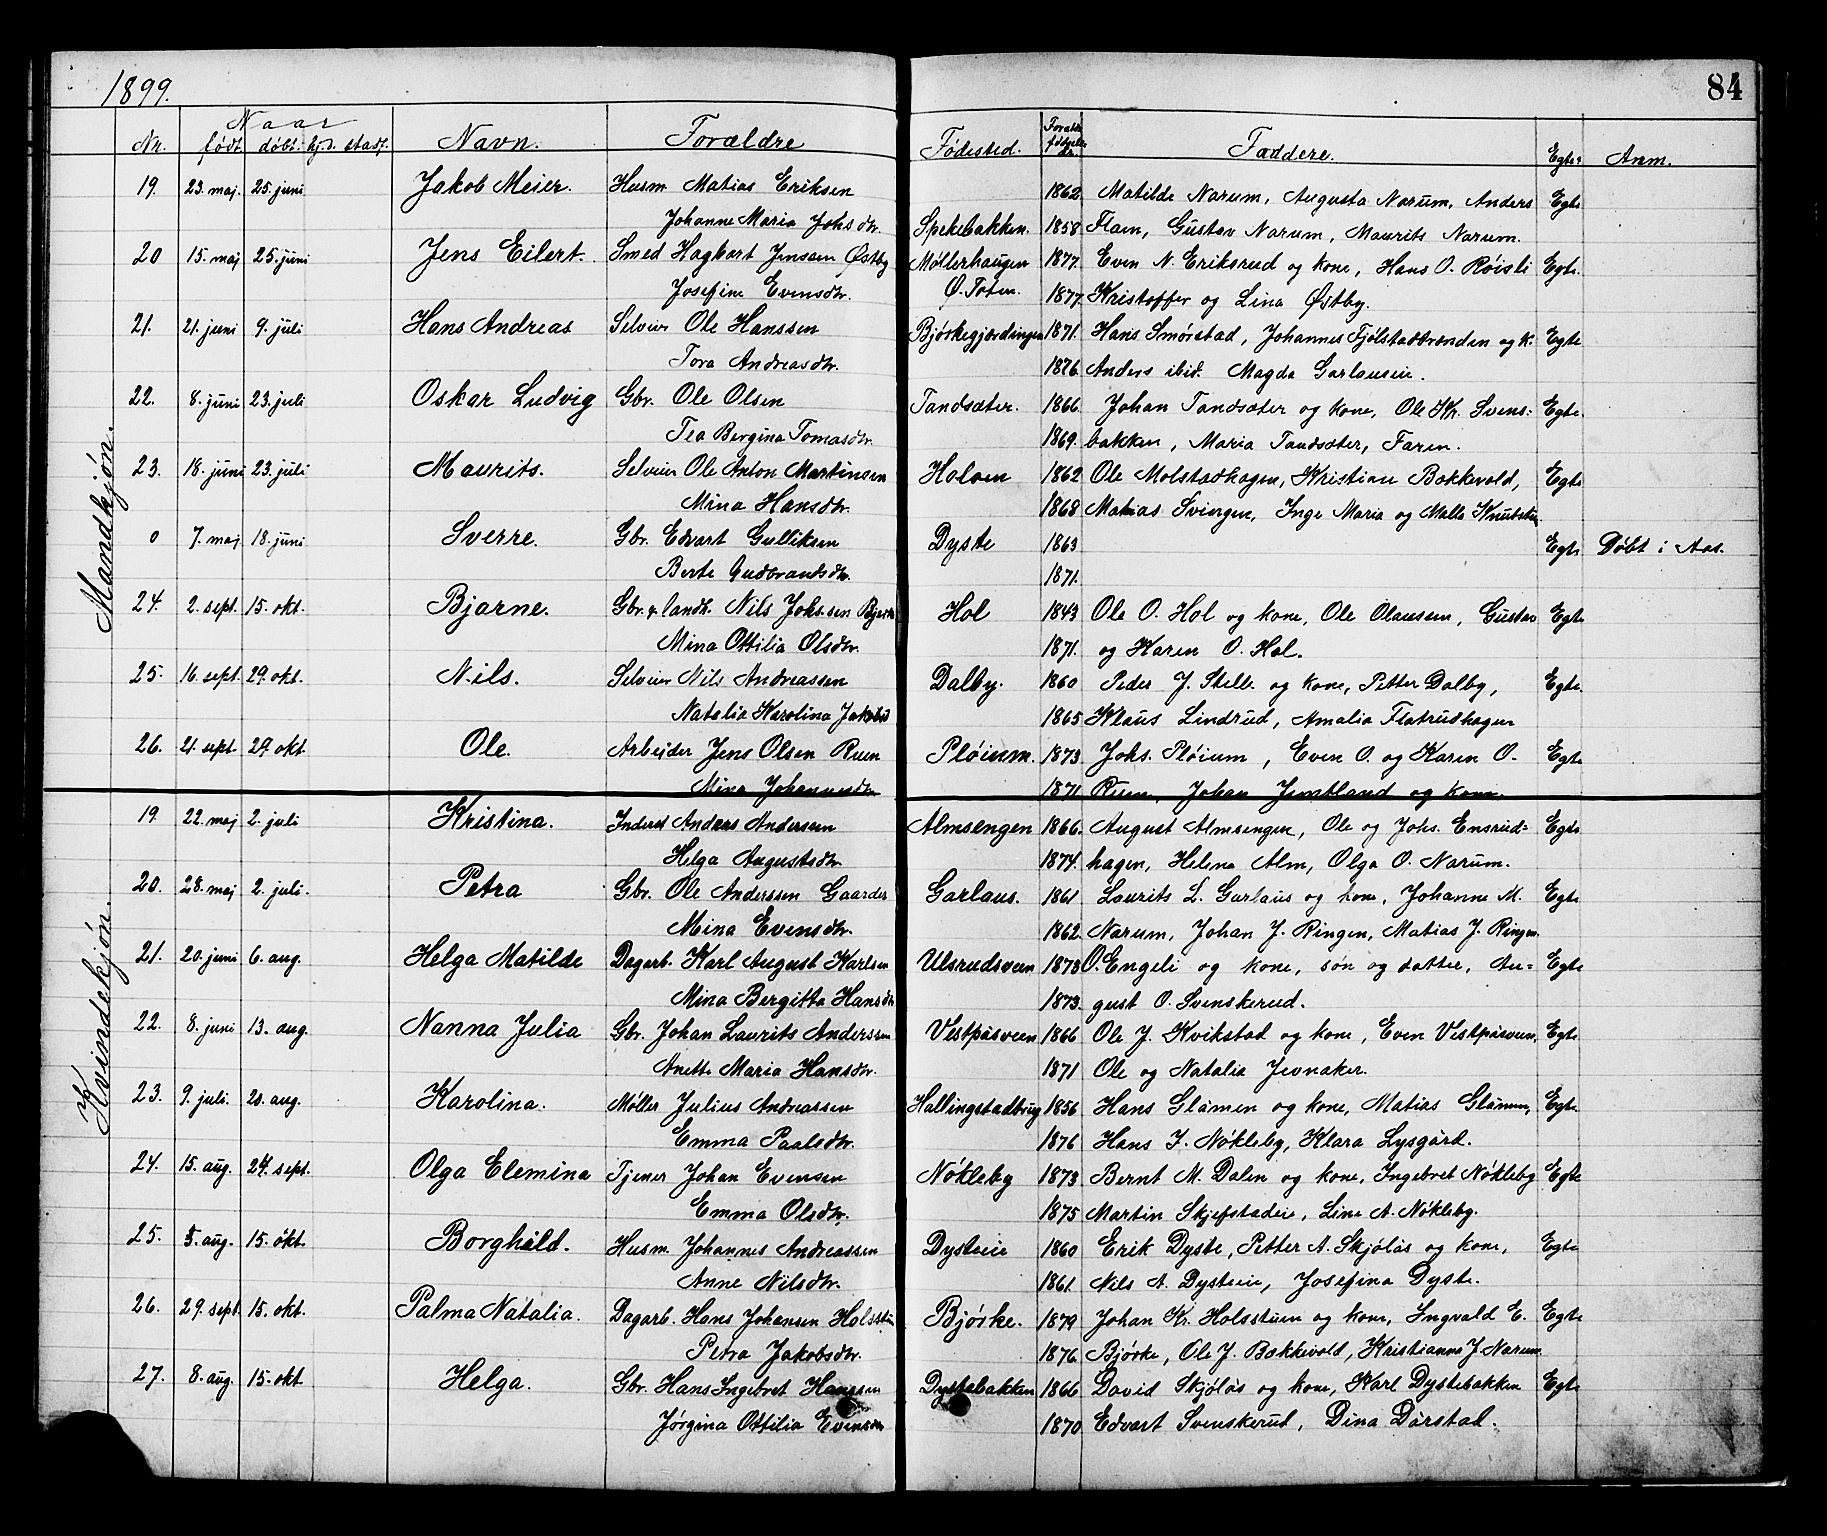 1899.
84
Naar
Nr. født. døbt. hj.d. stadf. Navn. Forældre Fødested. Foræld. fødsels- år. Faddere. Egte- Anm.
Mandkjøn.
19. 23. maj. 25. juni Jakob Meier. Husm. Matias Eriksen 1862 Matilde Narum, Augusta Narum, Anders Egte
Johanne Maria Johs.dtr. Spekebakken. 1858 Flam, Gustav Narum, Maurits Narum.
20 15. maj 25. juni Jens Eilert. Smed Hagbart Jenssen Østby Møllerhaugen 1877. Even N. Eriksrud og kone, Hans O. Røisli Egte.
Josefine Evensdtr. Ø. Toten. 1877. Kristoffer og Lina Østby.
21. 21. juni 9. juli Hans Andreas Selveier Ole Hanssen Bjørkegjærdingen 1871. Hans Smørstad, Johannes Fjølstadbrenden og k. Egte
Tora Andreasdtr. 1876. Anders ibid. Magda Garlausein.
22. 8. juni 23. juli Oskar Ludvig Gbr. Ole Olsen Tandsæter. 1866 Johan Tandsæter og kone, Ole Kr. Svens- Egte.
Tea Bergina Tomasdtr. 1869. bakken, Maria Tandsæter, Faren.
23. 18. juni 23. juli Maurits. Selveier Ole Anton Martinsen Holom 1862 Ole Molstadhagen, Kristian Bakkevold, Egte
Mina Hansdtr. 1868 Matias Sviergen, Inge Maria og Malla Knutstuen
0 7. maj 18. juni Sverre. Gbr. Edvart Gulliksen Dyste 1863 Egte Døbt i Aas.
Berte Gudbrandsdtr. 1871.
24. 2. sept. 15. okt. Bjarne. Gbr. & landh. Nils Johs.sen Hol 1843 Ole O. Hol og kone, Ole Olaussen, Gustav Egte
Mina Ottilia Olsdtr. 1871. og Karen O. Hol.
25. 16. sept. 29. okt. Nils. Selveier Nils Andreassen Dalby. 1860 Peder J. Stelb. og kone, Petter Dalby, Egte.
Natalia Karolina Jakobsd 1865 Klaus Lindrud, Amalia Flatrudhagen
26. 21. sept 29. okt Ole. Arbejder Jens Olsen Ruen Pløium. 1873 Johs. Pløium, Even O. og Karen O. Egte
Mina Johannesdtr 1871 Ruen, Johan Jemtland og kone.
Kvindekjøn.
19. 22. maj 2. juli Kristina. Inderst Anders Anderssen Almsengen 1866. August Almsengen, Ole og Johs. Ensrud- Egte
Helga Augustsdtr. 1874. hagen, Helena Alm, Olga O. Narum.
20. 28. maj 2. juli. Petra Gbr. Ole Anderssen Gaarder Garlaus. 1861 Laurits L. Garlaus og kone, Johanne M. Egte
Mina Evensdtr. 1862. Narum, Johan J. Ringen, Matias J. Ringen.
21. 20. juni 6. aug. Helga Matilde Dagarb. Karl August Karlsen Ulsrudsveen 1873 O. Engeli og kone, søn og datter, Au- Egte
Mina Bergitta Hansdtr 1873. gust O. Svenskerud.
22. 8. juni 13. aug. Nanna Julia Gbr. Johan Laurits Anderssen Vestpåsveen 1866 Ole J. Kvikstad og kone, Even Vestpåsveen, Egte
Anette Maria Hansdtr. 1871 Ole og Natalia Jevnaker.
23. 9. juli. 20. aug. Karolina. Møller Julius Andreassen Hallingstadbrug 1856 Hans Glåmen og kone, Matias Glåmen, Egte.
Emma Paalsdtr. 1876 Hans J. Nøkleby, Klara Lysgård.
24. 15. aug. 24. sept. Olga Elemina Tjener Johan Evensen Nøkleby 1873 Bernt M. Dalen og kone, Ingebret Nøkleby Egte
Emma Olsdtr. 1875 Martin Skjefstadeie, Line A. Nøkleby.
25. 5. aug. 15. økt. Borghild. Husm. Johannes Andreassen Dysteeie 1860 Erik Dyste, Petter A. Skjølås og kone, Egte
Anne Nilsdtr. 1861. Nils A. Dysteeie, Josefina Dyste.
26. 29. sept. 15. okt. Palma Natalia. Dagarb. Hans Johansen Holsstuen Bjørke. 1879 Johan Kr. Holsstuen og kone, Ingvald E. Egte
Petra Jakobsdtr. 1876. Bjørke, Ole J. Bakkevold, Kristianne J. Narum
27. 8. aug. 15. okt. Helga. Gbr. Hans Ingebret Hanssen Dystebakken 1866 David Skjølås og kone, Karl Dystebakken Egte
Jørgina Ottilia Evensdtr 1870 Edvart Svenskerud, Dina Dårstad.